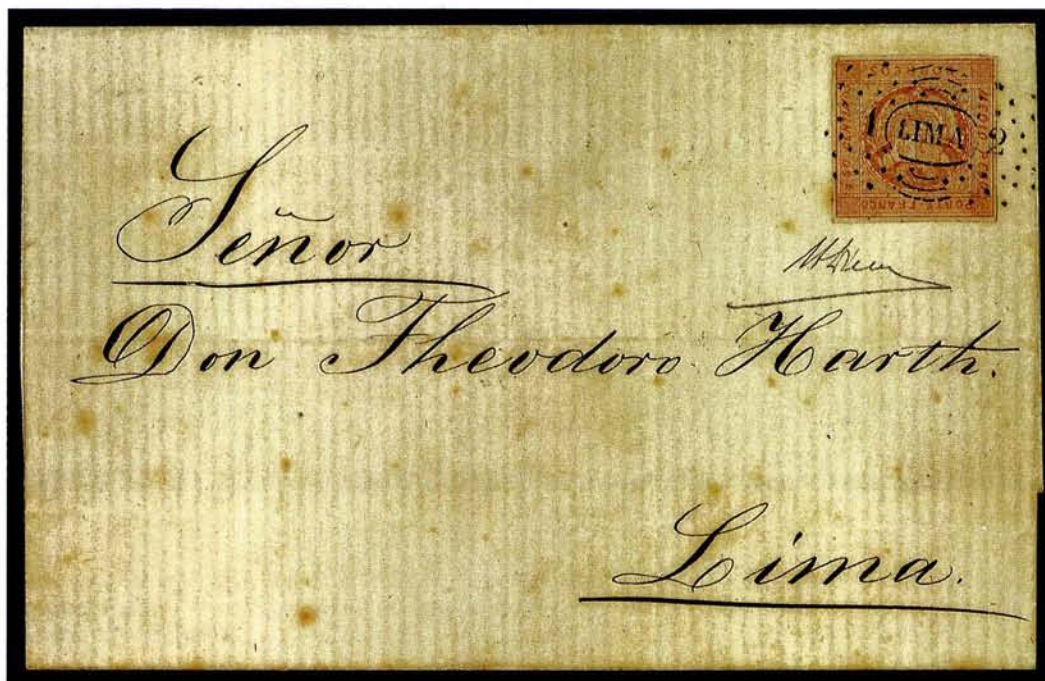 1 LIMA 2
PORTE FRANCO
CORREOS
Señor
Don Theodoro Harth.
Lima.